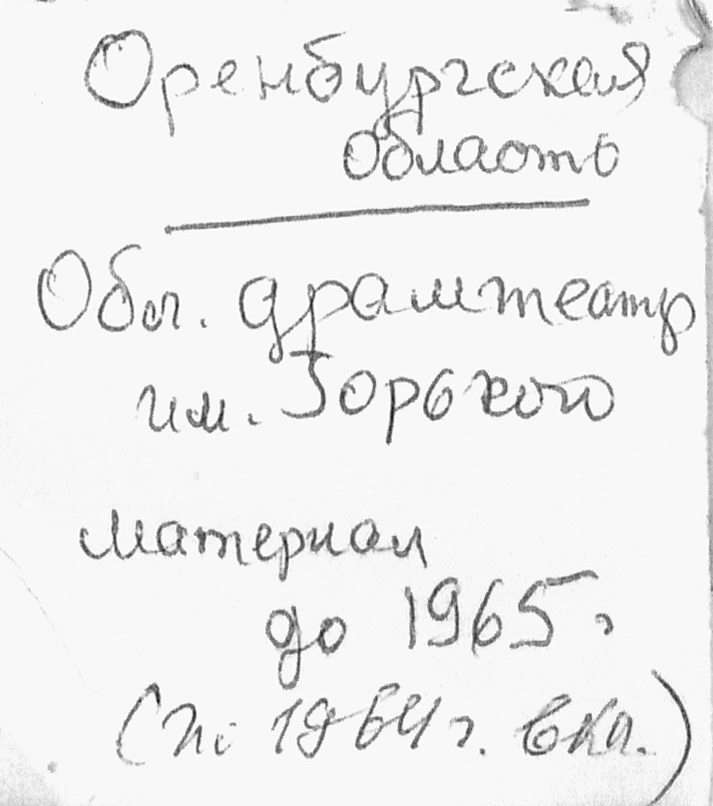 Оренбургская
область
Обл. драмтеатр
им. Горького
материал
до 1965 г
(по 1964 г. вкл.)